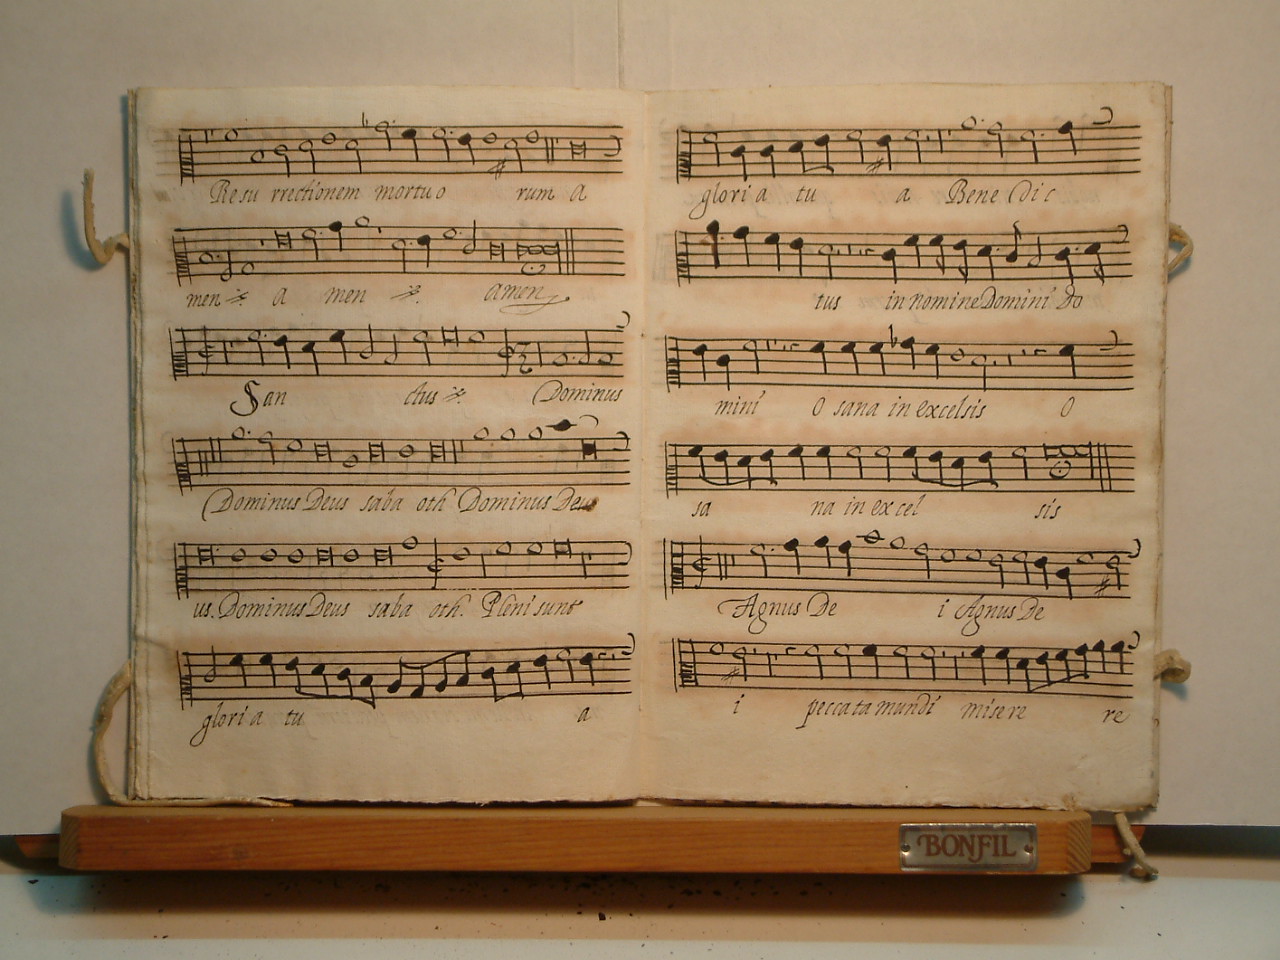 Resu rrectionem mortuo rum a
men a men amen
San ctus Dominus
Dominus Deus saba oth Dominus Deus
us. Dominus Deus saba oth. Pleni sunt
glori a tu a
glori a tu a Bene dic
tus in nomine Domini do
mini O sana in excelsis O
sa na in ex cel sis
Agnus De i Agnus De
i peccata mundi misere re
BONFIL